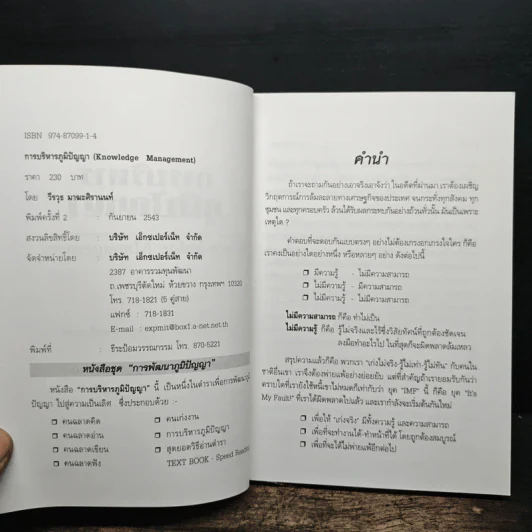 ISBN 974-87099-1-4
การบริหารภูมิปัญญา (Knowledge Management)
ราคา 230 บาท
โดย วีรวุธ มาฆะศิรานนท์
พิมพ์ครั้งที่ 2 กันยายน 2543
สงวนลิขสิทธิ์โดย : บริษัท เอ็กซเปอร์เน็ท จำกัด
จัดจำหน่ายโดย : บริษัท เอ็กซเปอร์เน็ท จำกัด
2387 อาคารรวมทุนพัฒนา
ถ.เพชรบุรีตัดใหม่ ห้วยขวาง กรุงเทพฯ 10320
โทร. 718-1821 (5 คู่สาย)
แฟกซ์ : 718-1831
E-mail : expmit@box1.a-net.net.th
พิมพ์ที่ : ธีระป้อมวรรณกรรม โทร. 870-5221
หนังสือชุด "การพัฒนาภูมิปัญญา"
หนังสือ "การบริหารภูมิปัญญา" นี้ เป็นหนึ่งในตำราเพื่อการพัฒนาภูมิ
ปัญญา ไปสู่ความเป็นเลิศ ซึ่งประกอบด้วย :-
คนฉลาดคิด คนเก่งงาน
คนฉลาดอ่าน การบริหารภูมิปัญญา
คนฉลาดเขียน สุดยอดวิธีอ่านตำรา
คนฉลาดฟัง TEXT BOOK - Speed
คำนำ
ถ้าเราจะถามกันอย่างเอาจริงเอาจังว่า ในอดีตที่ผ่านมา เราต้องเผชิญ
วิกฤตการณ์การล้มละลายทางเศรษฐกิจของประเทศ จนกระทั่งทุกสังคม ทุก
ชุมชน และทุกครอบครัว ล้วนได้รับผลกระทบกันอย่างถ้วนทั่วนั้น มันเป็นเพราะ
เหตุใด ?
คำตอบที่จะตอบกันแบบตรงๆ อย่างไม่ต้องเกรงอกเกรงใจใคร ก็คือ
เราคงเป็นอย่างใดอย่างหนึ่ง หรือหลายๆ อย่าง ดังต่อไปนี้
มีความรู้ - ไม่มีความสามารถ
ไม่มีความรู้ - มีความสามารถ
ไม่มีความรู้ - ไม่มีความสามารถ
ไม่มีความสามารถ ก็คือ ทำไม่เป็น
ไม่มีความรู้ ก็คือ รู้ไม่จริงและไร้ซึ่งวิสัยทัศน์ที่ถูกต้องชัดเจน
ลงมือทำอะไรไป ในที่สุดก็จะผิดพลาดล้มเหลว
สรุปความแล้วก็คือ พวกเรา "เก่งไม่จริง-รู้ไม่เท่า-รู้ไม่ทัน" กับคนใน
ชาติอื่นเขา เราจึงต้องพ่ายแพ้อย่างย่อยยับ แต่ที่สำคัญถ้าเรายอมรับกันว่า
ตราบใดที่เรายังใช้หนี้เขาไม่หมดก็เท่ากับว่า ยุค "IMF" นี้ ก็คือ ยุค "It's
My Fault!" ที่เราได้ผิดพลาดไปแล้ว และเรากำลังจะเริ่มต้นกันใหม่
เพื่อให้ "เก่งจริง" มีทั้งความรู้ และความสามารถ
เพื่อที่จะทำงานได้-ทำหน้าที่ได้ โดยถูกต้องสมบูรณ์
เพื่อที่จะได้ไม่พ่ายแพ้อีกต่อไป